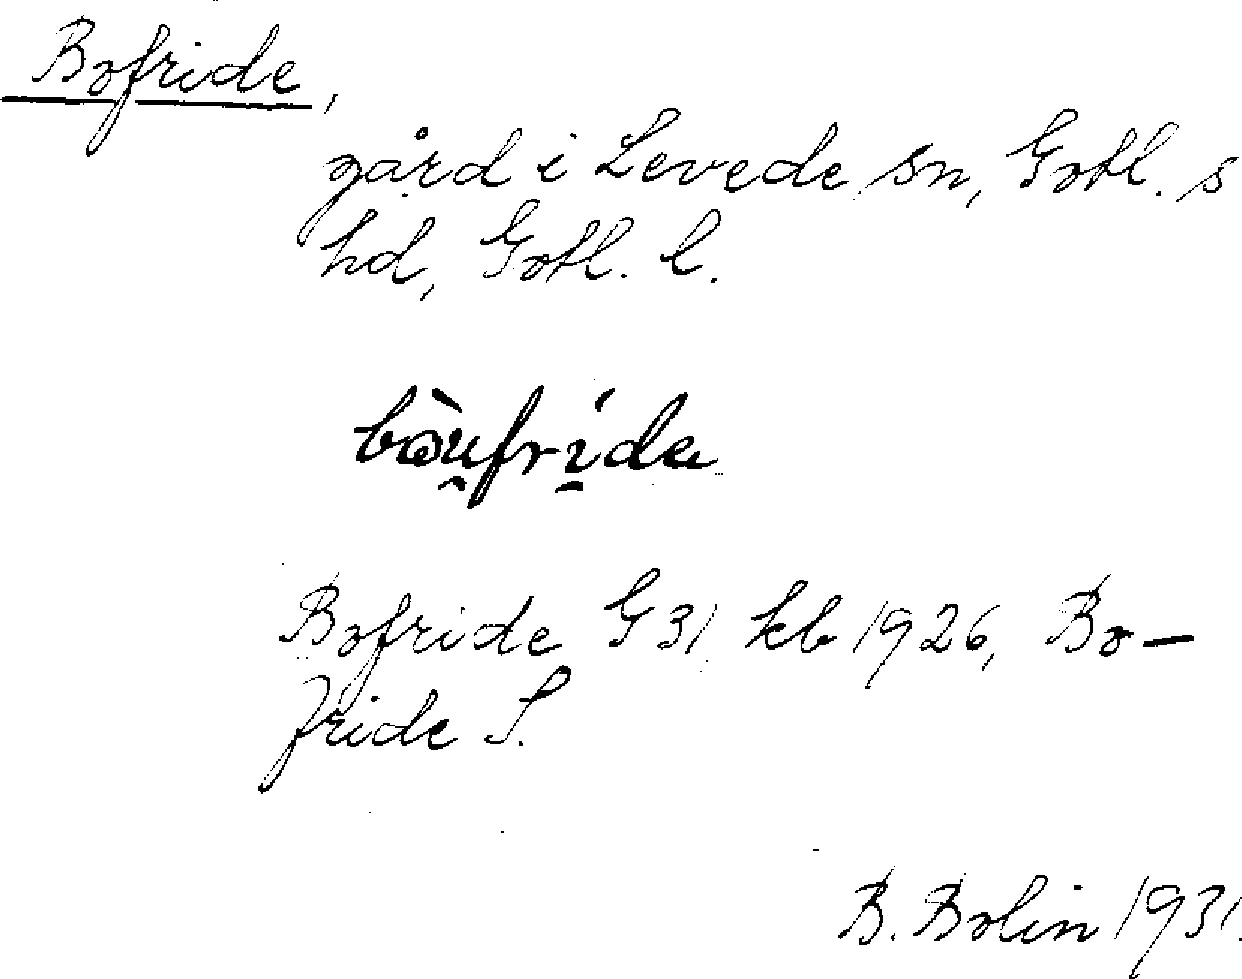 Bofride,
gård i Levede sn, Gotl. s
hd, Gotl. l.
bòu̯fri̱da
Bofride G 31 kb 1926, Bo-
fride S.
B. Bolin 1931.